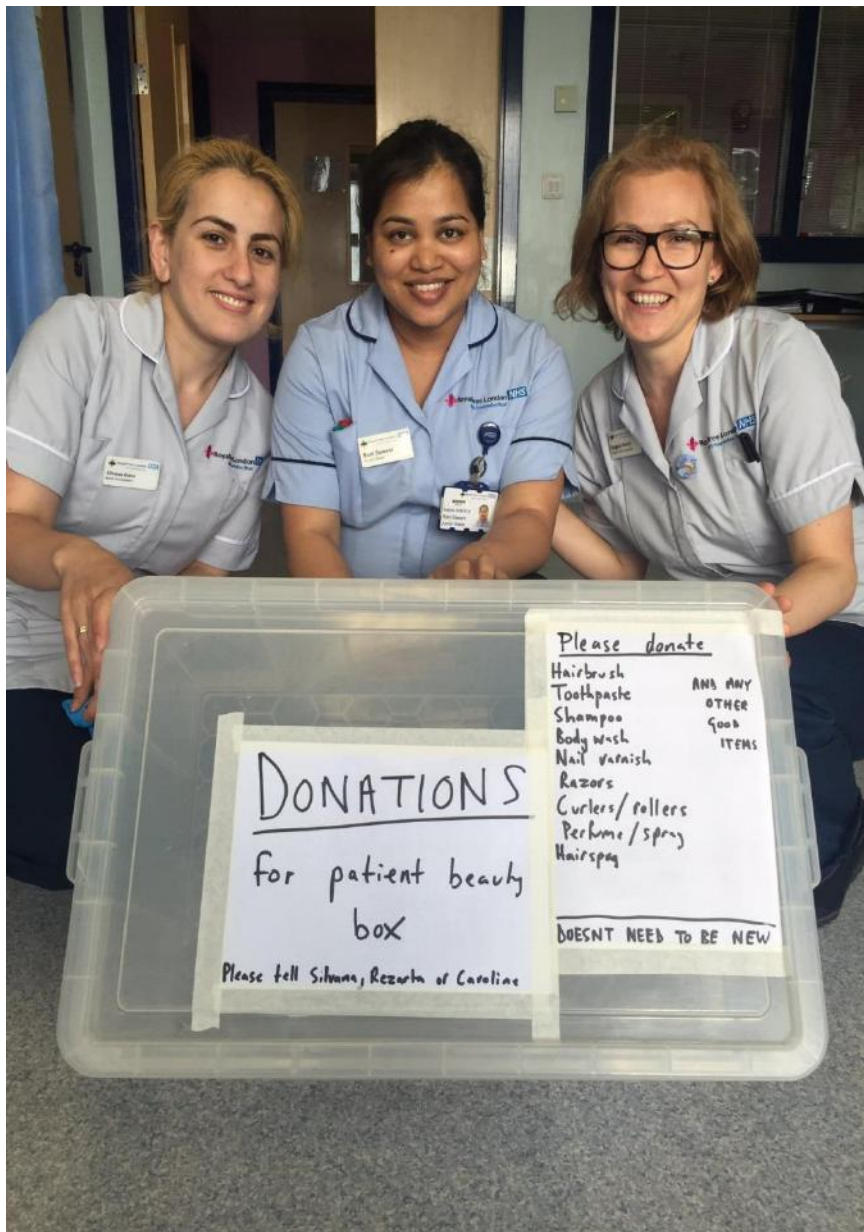 Royal Free London NHS
Royal Free London NHS
Royal Free London NHS
DONATIONS
for patient beauty
box
Please tell Silvana, Rezarta or Caroline
Please donate
Hairbrush
Toothpaste
Shampoo
Body wash
Nail varnish
Razors
Curlers/rollers
Perfume/spray
Hairspray
AND ANY
OTHER
GOOD
ITEMS
DOESNT NEED TO BE NEW